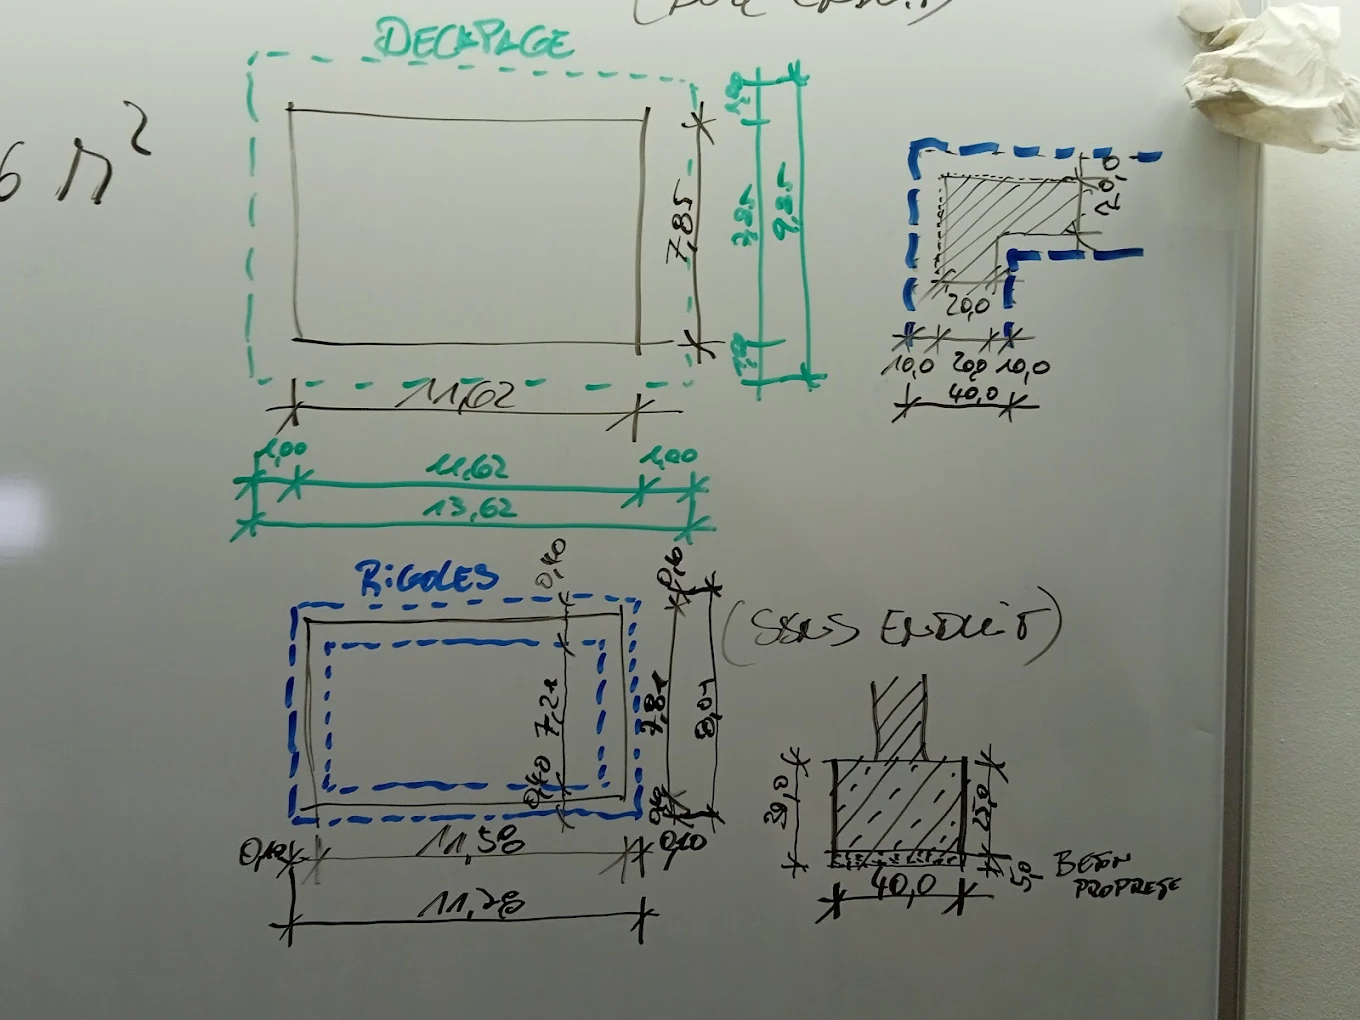 DECAPAGE
6 m²
7,85
1,00
7,85
1,00
9,85
11,62
1,00
11,62
1,00
13,62
20,0
20,0
10,0
20,0
10,0
40,0
RIGOLES
0,40
7,21
0,40
0,10
7,81
0,10
8,01
(SANS ENDUIT)
0,10
11,58
0,10
11,78
30,0
25,0
5,0
BETON
PROPRETE
40,0